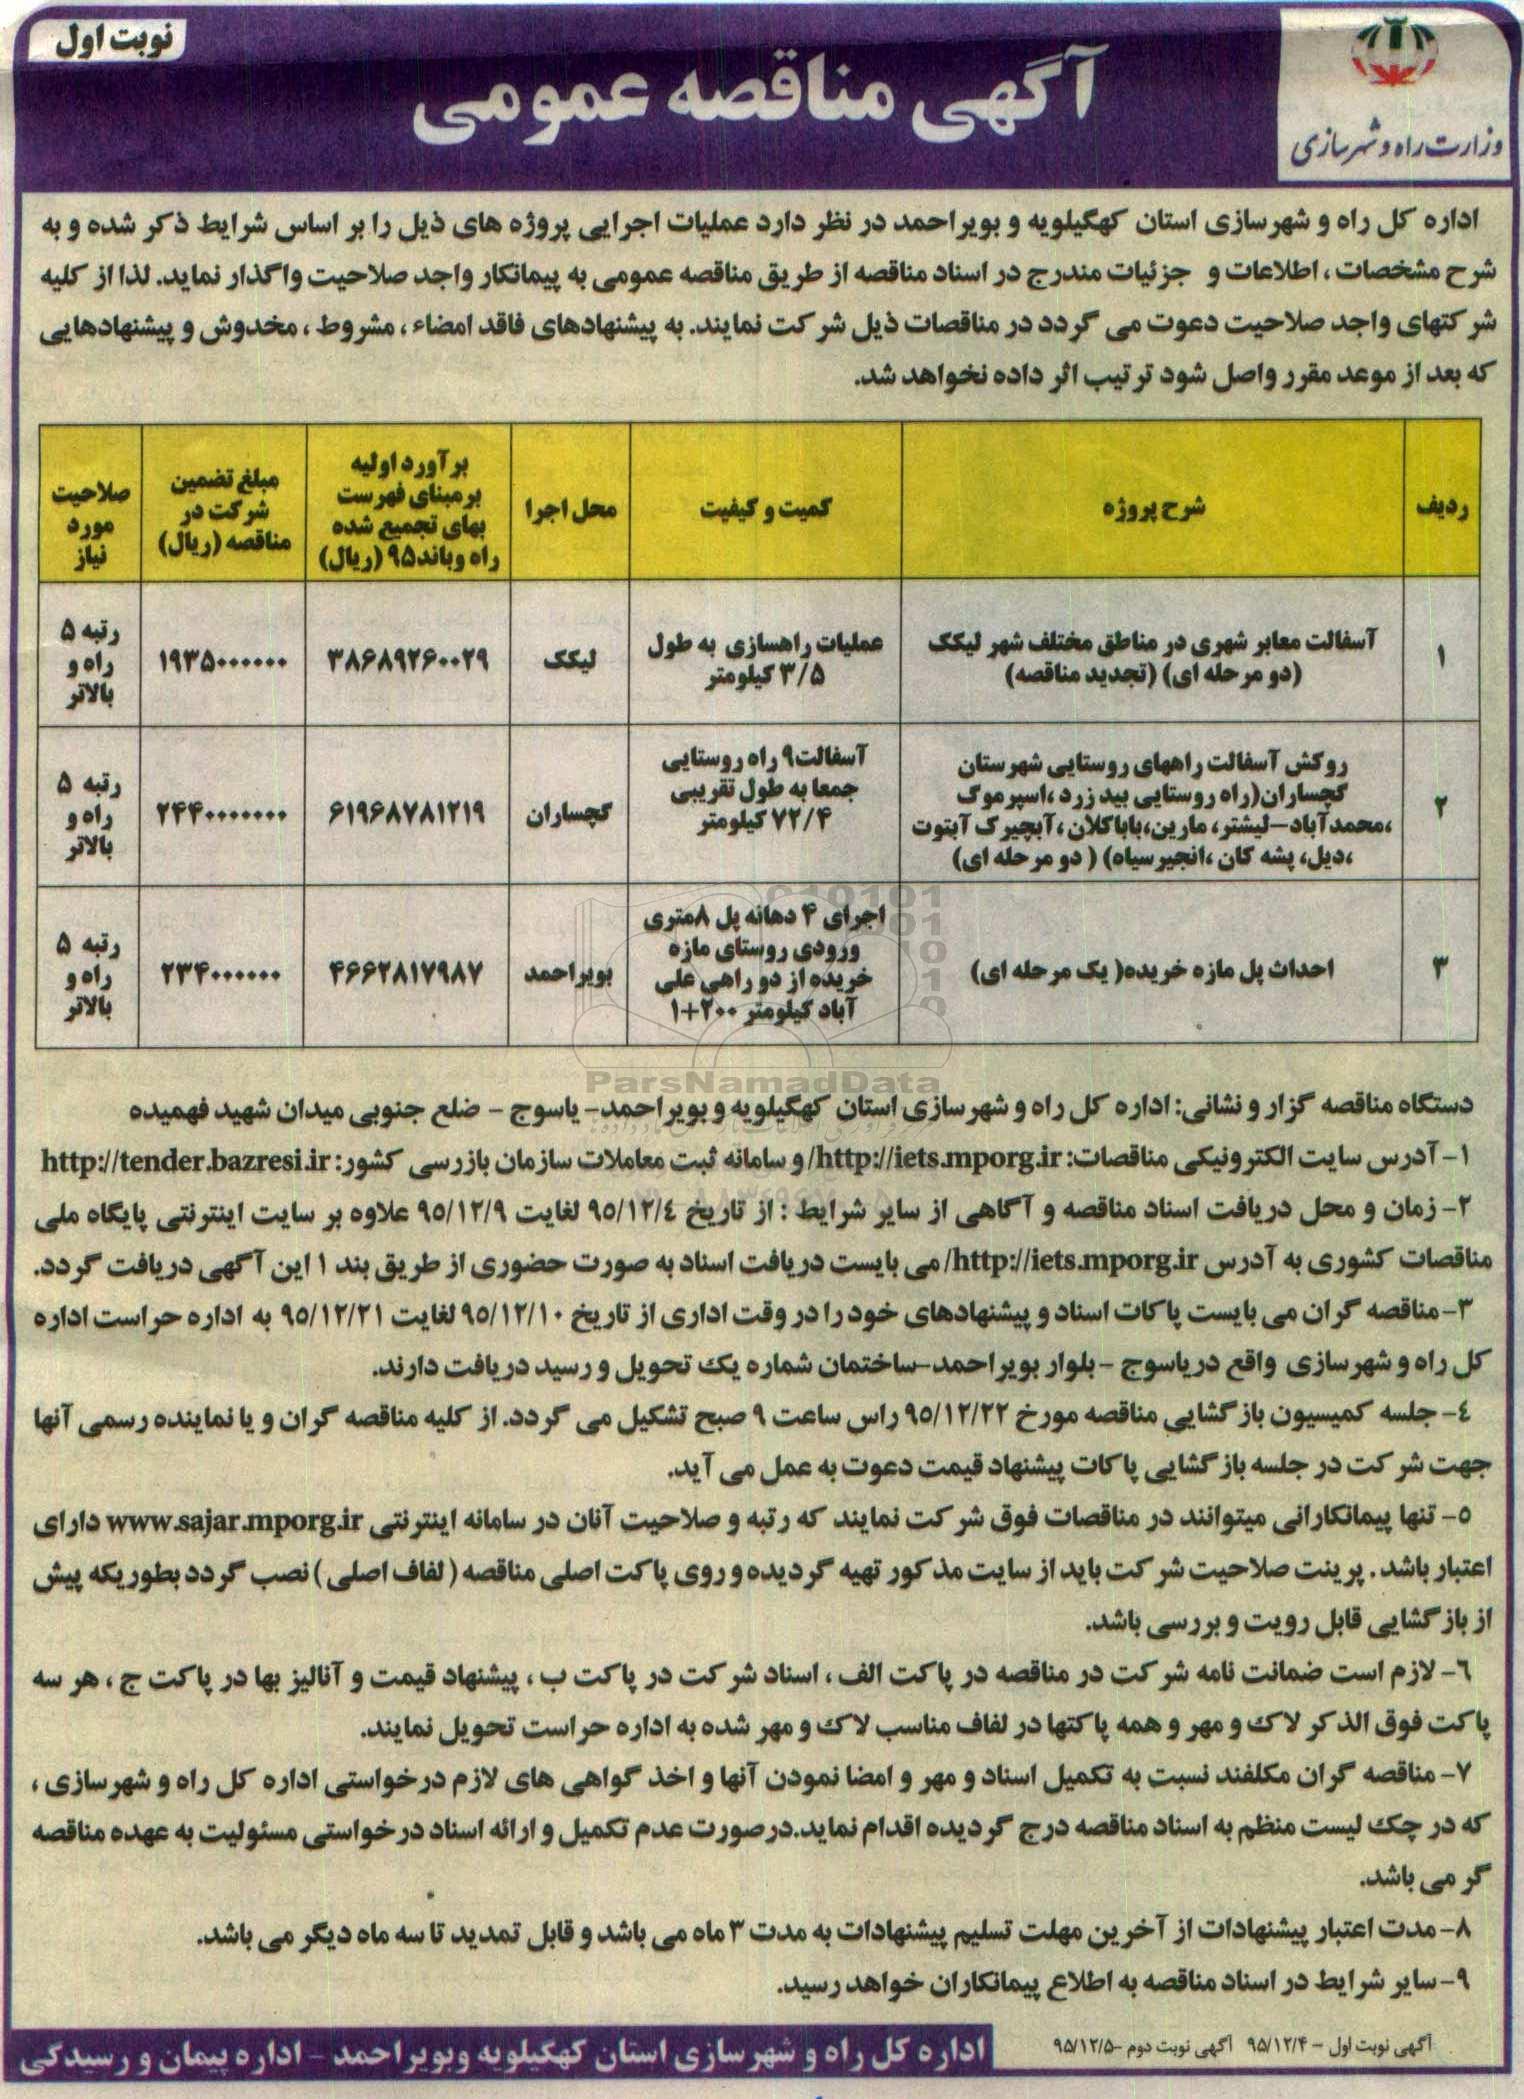 نوبت اول
آگهی مناقصه عمومی
وزارت راه و شهرسازی
اداره کل راه و شهرسازی استان کهگیلویه و بویراحمد در نظر دارد عملیات اجرایی پروژه های ذیل را بر اساس شرایط ذکر شده و به
شرح مشخصات ، اطلاعات و جزئیات مندرج در اسناد مناقصه از طریق مناقصه عمومی به پیمانکار واجد صلاحیت واگذار نماید. لذا از کلیه
شرکتهای واجد صلاحیت دعوت می گردد در مناقصات ذیل شرکت نمایند. به پیشنهادهای فاقد امضاء ، مشروط ، مخدوش و پیشنهادهایی
که بعد از موعد مقرر واصل شود ترتیب اثر داده نخواهد شد.
ردیف
شرح پروژه
کمیت و کیفیت
محل اجرا
برآورد اولیه
برمبنای فهرست
بهای تجمیع شده
راه وباند۹۵ (ریال)
مبلغ تضمین
شرکت در
مناقصه (ریال)
صلاحیت
مورد
نیاز
۱
آسفالت معابر شهری در مناطق مختلف شهر لیکک
(دو مرحله ای) (تجدید مناقصه)
عملیات راهسازی به طول
۳/۵ کیلومتر
لیکک
۳۸۶۸۹۲۶۰۰۲۹
۱۹۳۵۰۰۰۰۰۰
رتبه ۵
راه و
بالاتر
۲
روکش آسفالت راههای روستایی شهرستان
گچساران(راه روستایی بید زرد ،اسپرموک
،محمدآباد-لیشتر، مارین،باباکلان ،آبچیرک آبتوت
،دیل، پشه کان ،انجیرسیاه) ( دو مرحله ای)
آسفالت۹ راه روستایی
جمعا به طول تقریبی
۷۲/۴ کیلومتر
گچساران
۶۱۹۶۸۷۸۱۲۱۹
۲۴۴۰۰۰۰۰۰۰
رتبه ۵
راه و
بالاتر
۳
احداث پل مازه خریده( یک مرحله ای)
اجرای ۴ دهانه پل ۸متری
ورودی روستای مازه
خریده از دو راهی علی
آباد کیلومتر ۲۰۰+۱
بویراحمد
۴۶۶۲۸۱۷۹۸۷
۲۳۴۰۰۰۰۰۰
رتبه ۵
راه و
بالاتر
ParsNamadData
دستگاه مناقصه گزار و نشانی: اداره کل راه و شهرسازی استان کهگیلویه و بویراحمد- یاسوج - ضلع جنوبی میدان شهید فهمیده
۱- آدرس سایت الکترونیکی مناقصات: http://iets.mporg.ir/ و سامانه ثبت معاملات سازمان بازرسی کشور: http://tender.bazresi.ir
۲- زمان و محل دریافت اسناد مناقصه و آگاهی از سایر شرایط : از تاریخ ۹۵/۱۲/٤ لغایت ۹۵/۱۲/۹ علاوه بر سایت اینترنتی پایگاه ملی
مناقصات کشوری به آدرس http://iets.mporg.ir/ می بایست دریافت اسناد به صورت حضوری از طریق بند ۱ این آگهی دریافت گردد.
۳- مناقصه گران می بایست پاکات اسناد و پیشنهادهای خود را در وقت اداری از تاریخ ۹۵/۱۲/۱۰ لغایت ۹۵/۱۲/۲۱ به اداره حراست اداره
کل راه و شهرسازی واقع در یاسوج - بلوار بویراحمد-ساختمان شماره یک تحویل و رسید دریافت دارند.
٤- جلسه کمیسیون بازگشایی مناقصه مورخ ۹۵/۱۲/۲۲ راس ساعت ۹ صبح تشکیل می گردد. از کلیه مناقصه گران و یا نماینده رسمی آنها
جهت شرکت در جلسه بازگشایی پاکات پیشنهاد قیمت دعوت به عمل می آید.
۵- تنها پیمانکارانی میتوانند در مناقصات فوق شرکت نمایند که رتبه و صلاحیت آنان در سامانه اینترنتی www.sajar.mporg.ir دارای
اعتبار باشد . پرینت صلاحیت شرکت باید از سایت مذکور تهیه گردیده و روی پاکت اصلی مناقصه ( لفاف اصلی ) نصب گردد بطوریکه پیش
از بازگشایی قابل رویت و بررسی باشد.
٦- لازم است ضمانت نامه شرکت در مناقصه در پاکت الف ، اسناد شرکت در پاکت ب ، پیشنهاد قیمت و آنالیز بها در پاکت ج ، هر سه
پاکت فوق الذکر لاک و مهر و همه پاکتها در لفاف مناسب لاک و مهر شده به اداره حراست تحویل نمایند.
۷- مناقصه گران مکلفند نسبت به تکمیل اسناد و مهر و امضا نمودن آنها و اخذ گواهی های لازم درخواستی اداره کل راه و شهرسازی ،
که در چک لیست منظم به اسناد مناقصه درج گردیده اقدام نماید.درصورت عدم تکمیل و ارائه اسناد درخواستی مسئولیت به عهده مناقصه
گر می باشد.
۸- مدت اعتبار پیشنهادات از آخرین مهلت تسلیم پیشنهادات به مدت ۳ ماه می باشد و قابل تمدید تا سه ماه دیگر می باشد.
۹- سایر شرایط در اسناد مناقصه به اطلاع پیمانکاران خواهد رسید.
آگهی نوبت اول - ۹۵/۱۲/۴ آگهی نوبت دوم -۹۵/۱۲/۵
اداره کل راه و شهرسازی استان کهگیلویه وبویراحمد - اداره پیمان و رسیدگی